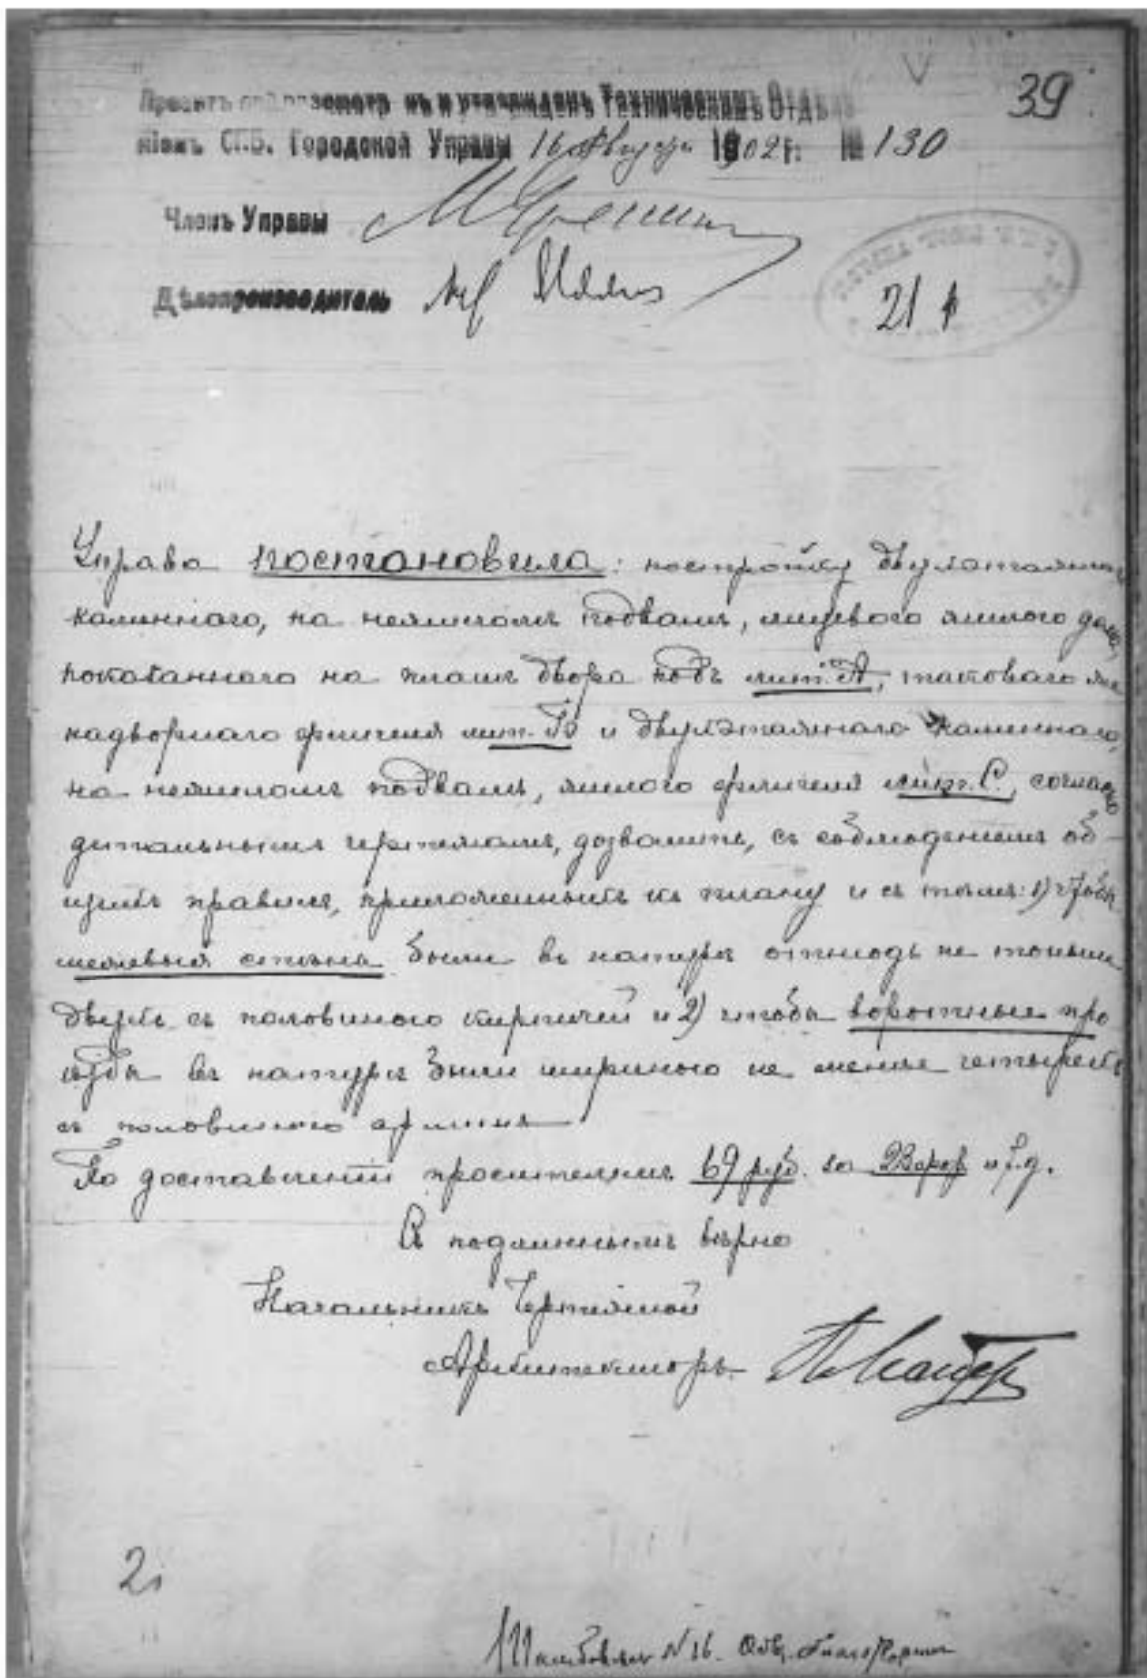 39
Проектъ сей разсмотрѣнъ и утвержденъ Техническимъ Отдѣле
ніемъ СПБ. Городской Управы 16 Января 1902 г. № 130
Членъ Управы
Дѣлопроизводитель
21
Управа постановила: постройку двухэтажнаго
каменнаго, на нежиломъ подвалѣ, лицеваго жилого дома,
показаннаго на планѣ двора подъ лит. А, таковаго же
надворнаго флигеля лит. В и двухэтажнаго каменнаго,
на нежиломъ подвалѣ, жилого флигеля лит. С, согласно
детальнымъ чертежамъ, дозволить, съ соблюденіемъ об-
щихъ правилъ, приложенныхъ къ плану и съ тѣмъ: 1) чтобы
межевыя стѣны были въ натурѣ отнюдь не тоньше
двухъ съ половиною кирпичей и 2) чтобы воротные про
ѣзды въ натурѣ были шириною не менѣе четырехъ
съ половиною аршинъ
По доставленіи просителемъ 69 руб. за и т. д.
Съ подлиннымъ вѣрно
Начальникъ Чертежной
Архитекторъ
2
N 16.